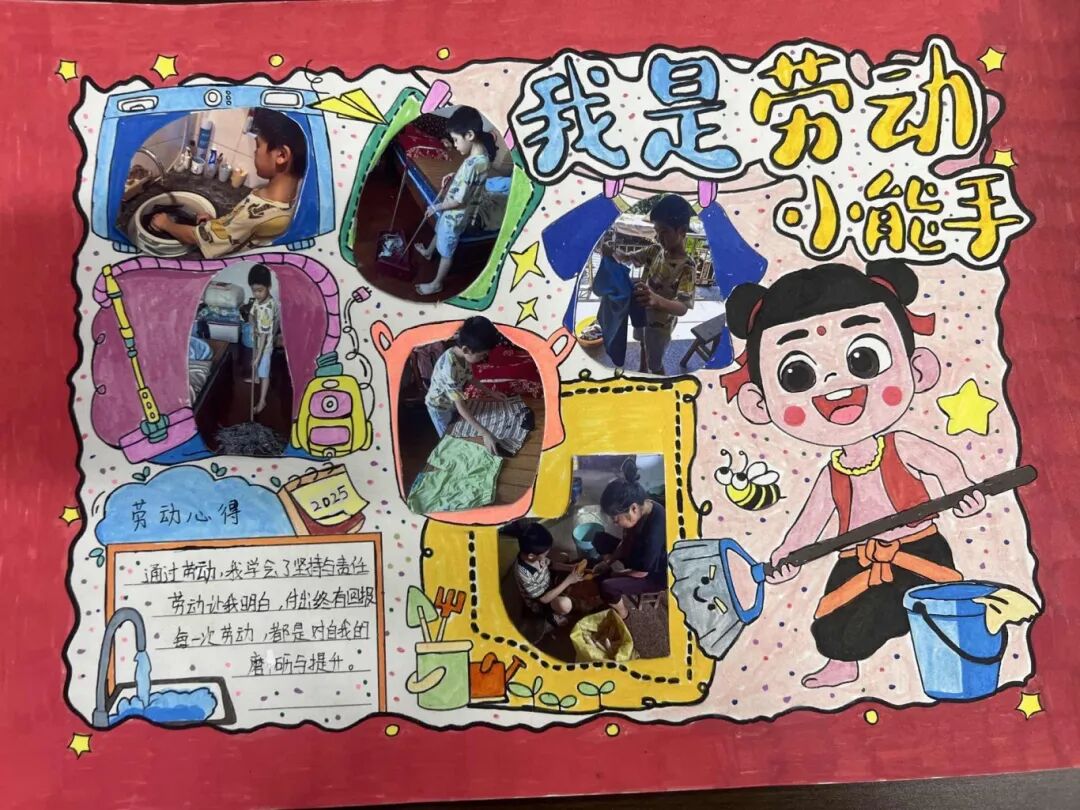 我是劳动
小能手
劳动心得
2025
通过劳动，我学会了坚持与责任
劳动让我明白，付出终有回报
每一次劳动，都是对自我的
磨砺与提升。